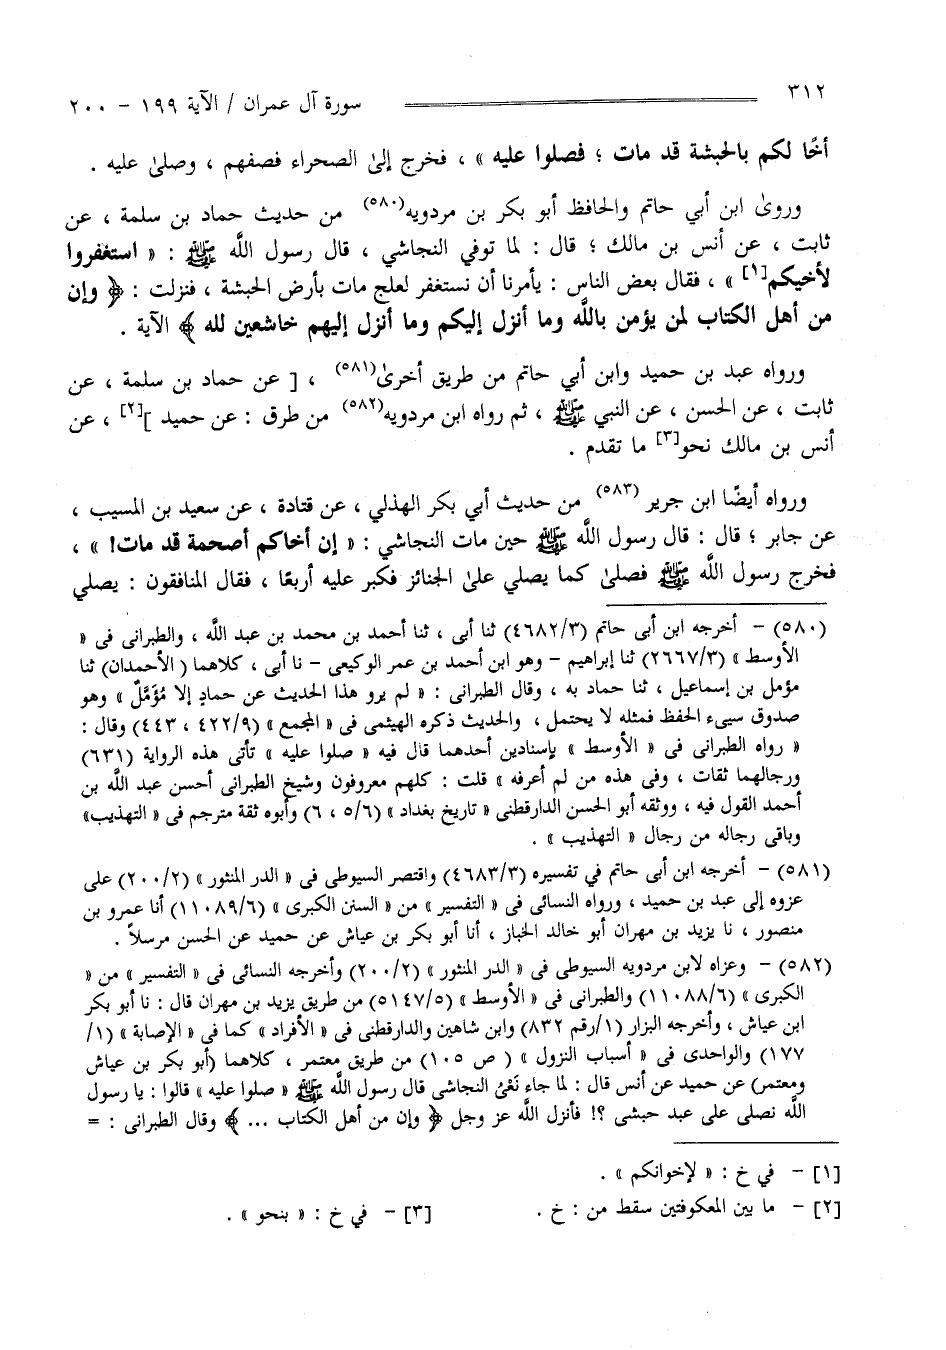 ٣١٢
سورة آل عمران / الآية ١٩٩ - ٢٠٠
أخًا لكم بالحبشة قد مات ؛ فصلوا عليه » ، فخرج إلىٰ الصحراء فصفهم ، وصلىٰ عليه .
وروىٰ ابن أبي حاتم والحافظ أبو بكر بن مردويه(٥٨٠) من حديث حماد بن سلمة ، عن
ثابت ، عن أنس بن مالك ؛ قال : لما توفي النجاشي ، قال رسول اللَّه ﷺ : « استغفروا
لأخيكم[١] » ، فقال بعض الناس : يأمرنا أن نستغفر لعلج مات بأرض الحبشة ، فنزلت : ﴿ وإن
من أهل الكتاب لمن يؤمن باللَّه وما أنزل إليكم وما أنزل إليهم خاشعين لله ﴾ الآية .
ورواه عبد بن حميد وابن أبي حاتم من طريق أخرىٰ(٥٨١) ، [ عن حماد بن سلمة ، عن
ثابت ، عن الحسن ، عن النبي ﷺ ، ثم رواه ابن مردويه(٥٨٢) من طرق : عن حميد ][٢] ، عن
أنس بن مالك نحو[٣] ما تقدم .
ورواه أيضًا ابن جرير (٥٨٣) من حديث أبي بكر الهذلي ، عن قتادة ، عن سعيد بن المسيب ،
عن جابر ؛ قال : قال رسول اللَّه ﷺ حين مات النجاشي : « إن أخاكم أصحمة قد مات! » ،
فخرج رسول اللَّه ﷺ فصلىٰ كما يصلي علىٰ الجنائز فكبر عليه أربعًا ، فقال المنافقون : يصلي
(٥٨٠) - أخرجه ابن أبى حاتم (٤٦٨٢/٣) ثنا أبى ، ثنا أحمد بن محمد بن عبد اللَّه ، والطبرانى فى «
الأوسط » (٢٦٦٧/٣) ثنا إبراهيم - وهو ابن أحمد بن عمر الوكيعى - نا أبى ، كلاهما ( الأحمدان) ثنا
مؤمل بن إسماعيل ، ثنا حماد به ، وقال الطبرانى : « لم يرو هذا الحديث عن حمادٍ إلا مُؤَمَّلٌ » وهو
صدوق سيىء الحفظ فمثله لا يحتمل ، والحديث ذكره الهيثمى فى « المجمع » (٤٢٢/٩ ، ٤٤٣) وقال :
« رواه الطبرانى فى « الأوسط » بإسنادين أحدهما قال فيه « صلوا عليه » تأتى هذه الرواية (٦٣١)
ورجالهما ثقات ، وفى هذه من لم أعرفه » قلت : كلهم معروفون وشيخ الطبرانى أحسن عبد اللَّه بن
أحمد القول فيه ، ووثقه أبو الحسن الدارقطنى « تاريخ بغداد » (٥/٦ ، ٦) وأبوه ثقة مترجم فى « التهذيب»
وباقى رجاله من رجال « التهذيب » .
(٥٨١) - أخرجه ابن أبى حاتم في تفسيره (٤٦٨٣/٣) واقتصر السيوطى فى « الدر المنثور » (٢٠٠/٢) على
عزوه إلى عبد بن حميد ، ورواه النسائى فى « التفسير » من « السنن الكبرى » (١١٠٨٩/٦) أنا عمرو بن
منصور ، نا يزيد بن مهران أبو خالد الخباز ، أنا أبو بكر بن عياش عن حميد عن الحسن مرسلاً .
(٥٨٢) - وعزاه لابن مردويه السيوطى فى « الدر المنثور » (٢٠٠/٢) وأخرجه النسائى فى « التفسير » من «
الكبرى » (١١٠٨٨/٦) والطبرانى فى « الأوسط » (٥١٤٧/٥) من طريق يزيد بن مهران قال : نا أبو بكر
ابن عياش ، وأخرجه البزار (١/رقم ٨٣٢) وابن شاهين والدارقطنى فى « الأفراد » كما فى « الإصابة » (١/
١٧٧) والواحدى فى « أسباب النزول » ( ص ١٠٥) من طريق معتمر ، كلاهما (أبو بكر بن عياش
ومعتمر) عن حميد عن أنس قال : لما جاء نَعْىُ النجاشى قال رسول اللَّه ﷺ « صلوا عليه » قالوا : يا رسول
اللَّه نصلى على عبد حبشى ؟! فأنزل اللَّه عز وجل ﴿ وإن من أهل الكتاب ... ﴾ وقال الطبرانى : =
[١] - في خ : « لإخوانكم » .
[٢] - ما بين المعكوفتين سقط من : خ .
[٣] - في خ : « بنحو » .